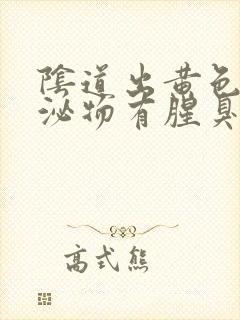 陰道出黃色
泌物有腥臭
高式熊